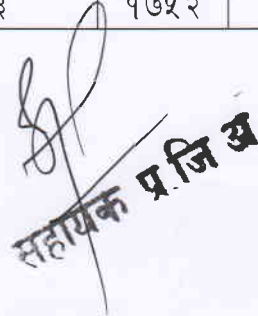 १७५२
सहायक प्र.जि.अ